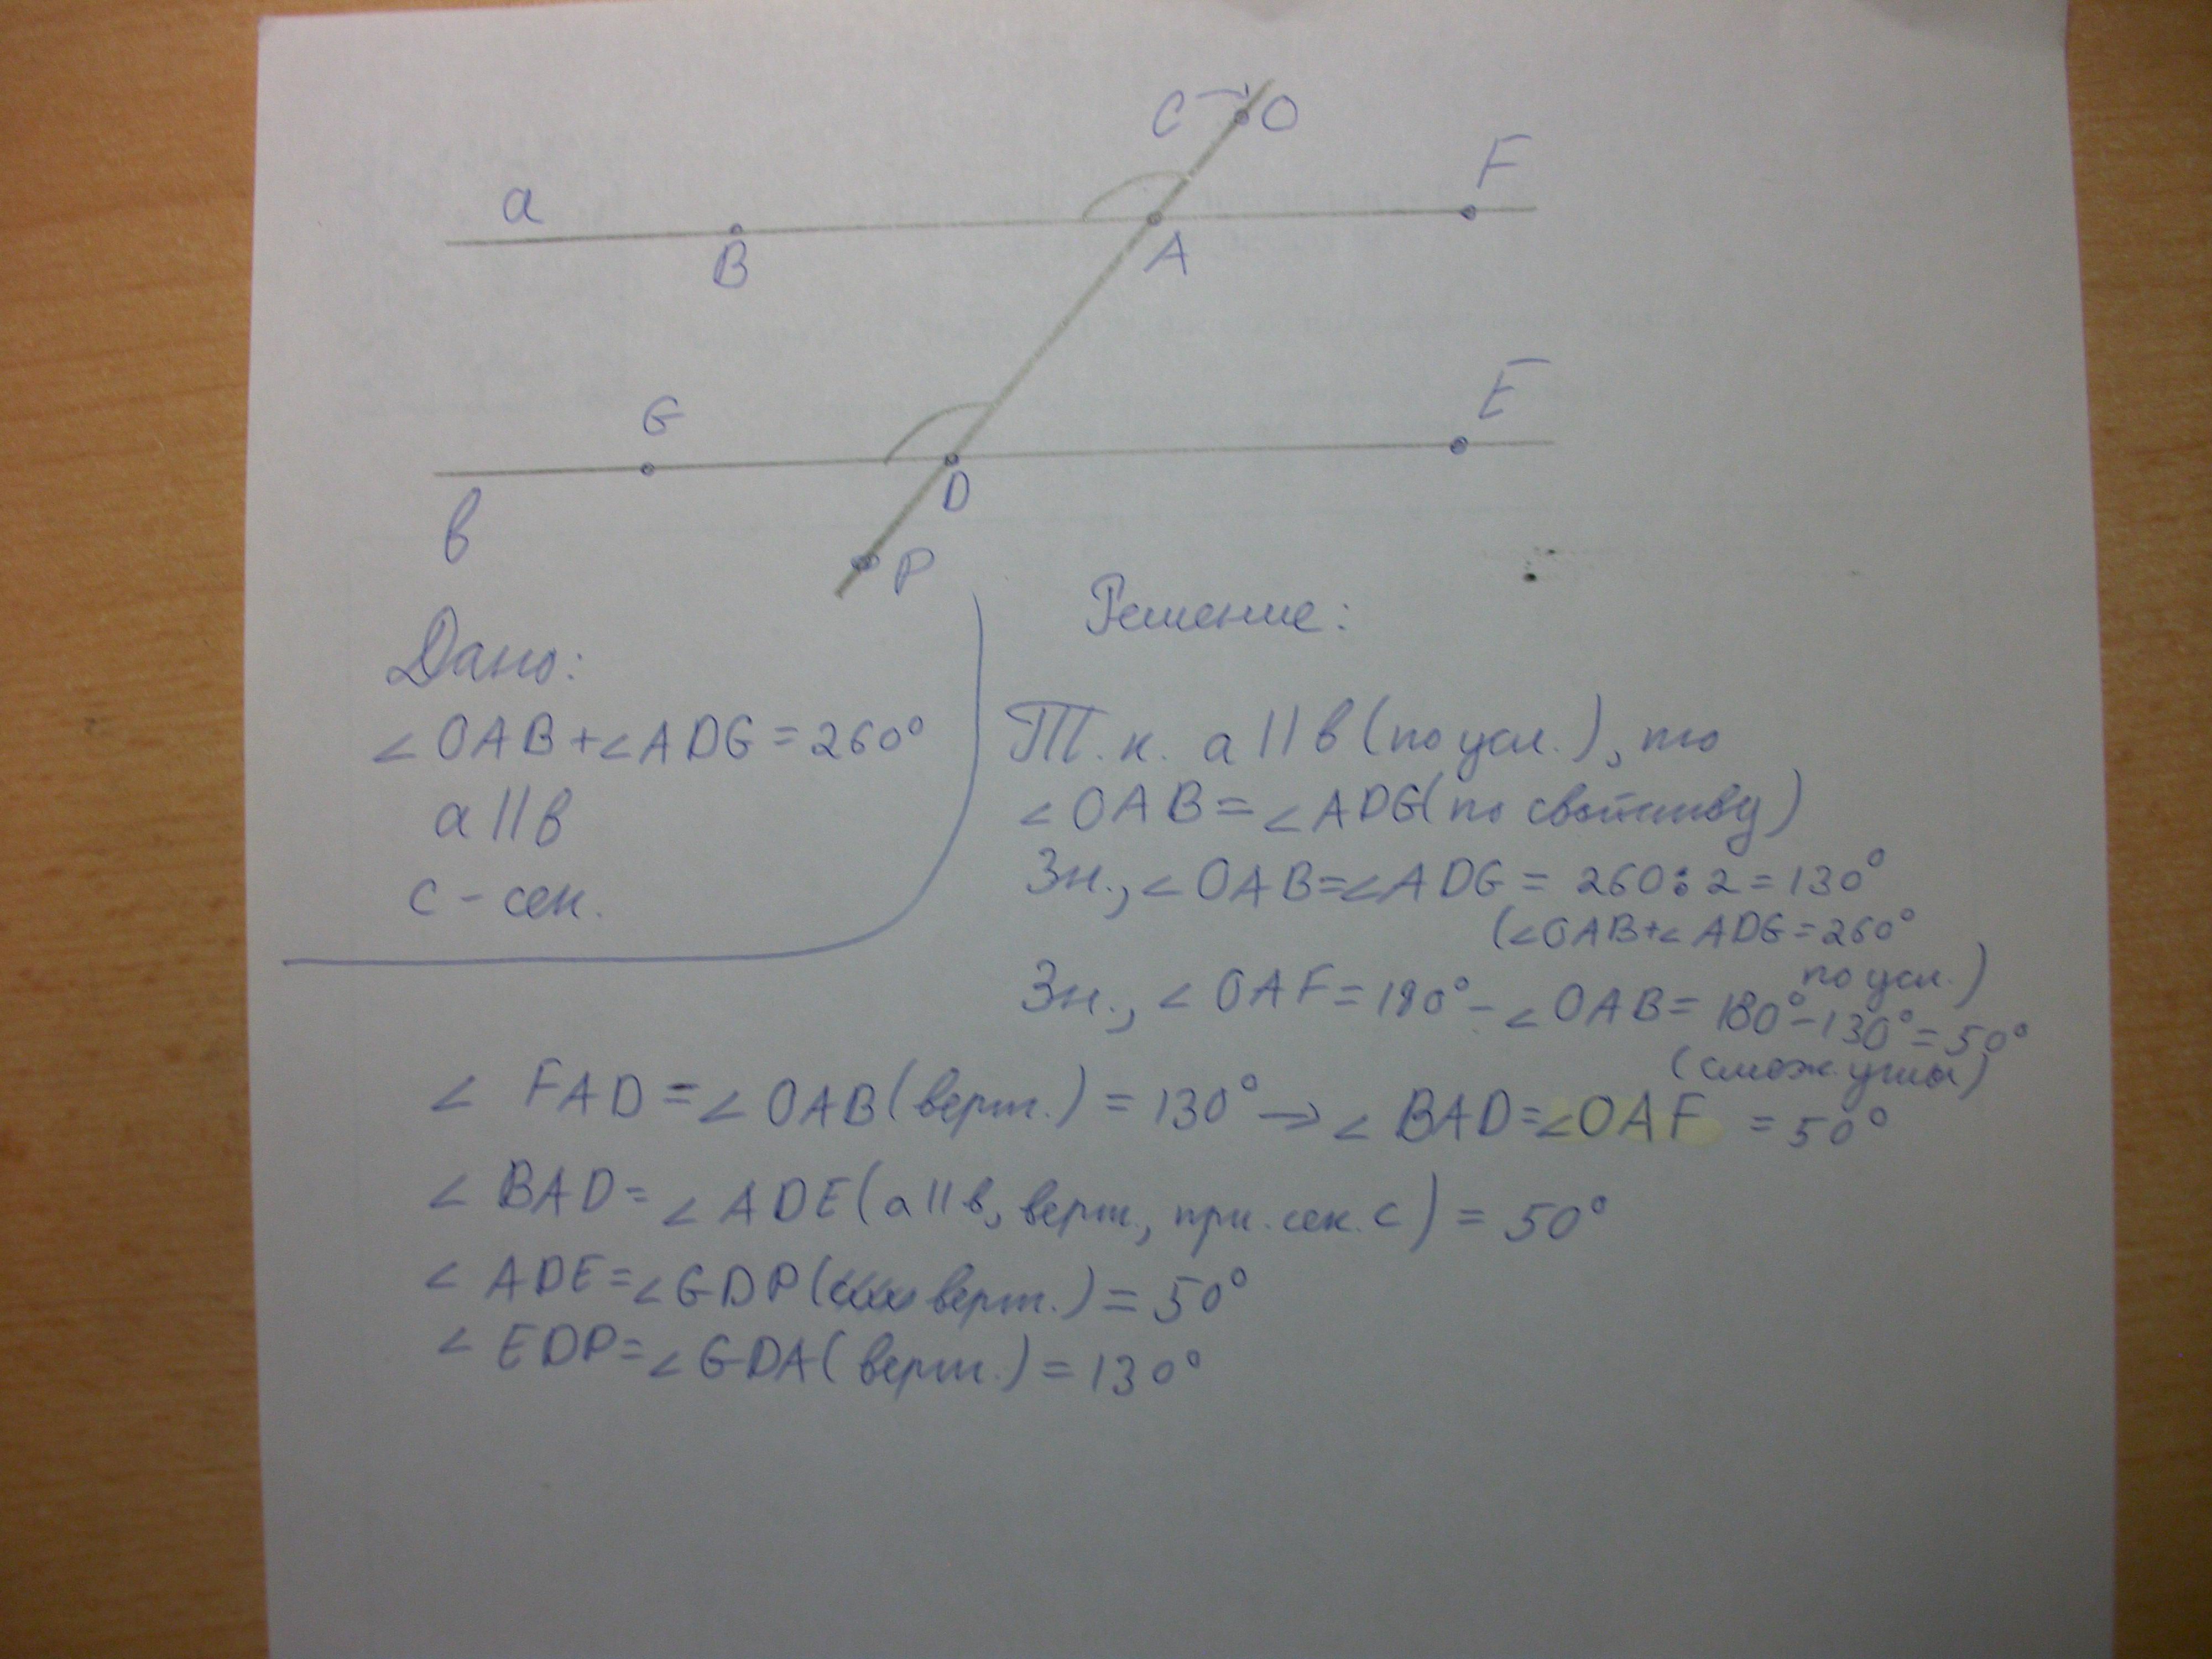 C O
F
a
B
A
G
E
в
D
P
Дано:
∠OAB+∠ADG=260°
a||в
c - сек.
Решение:
Т.к. a||в (по усл.), то
∠OAB=∠ADG (по свойству)
Зн., ∠OAB=∠ADG = 260:2=130°
(∠OAB+∠ADG=260°
по усл.)
Зн., ∠OAF=180°-∠OAB=180°-130°=50°
(смеж. углы)
∠FAD=∠OAB (верт.) = 130° → ∠BAD=∠OAF = 50°
∠BAD=∠ADE (a||в, верт., при. сек. c) = 50°
∠ADE=∠GDP ( верт.) = 50°
∠EDP=∠GDA (верт.) = 130°